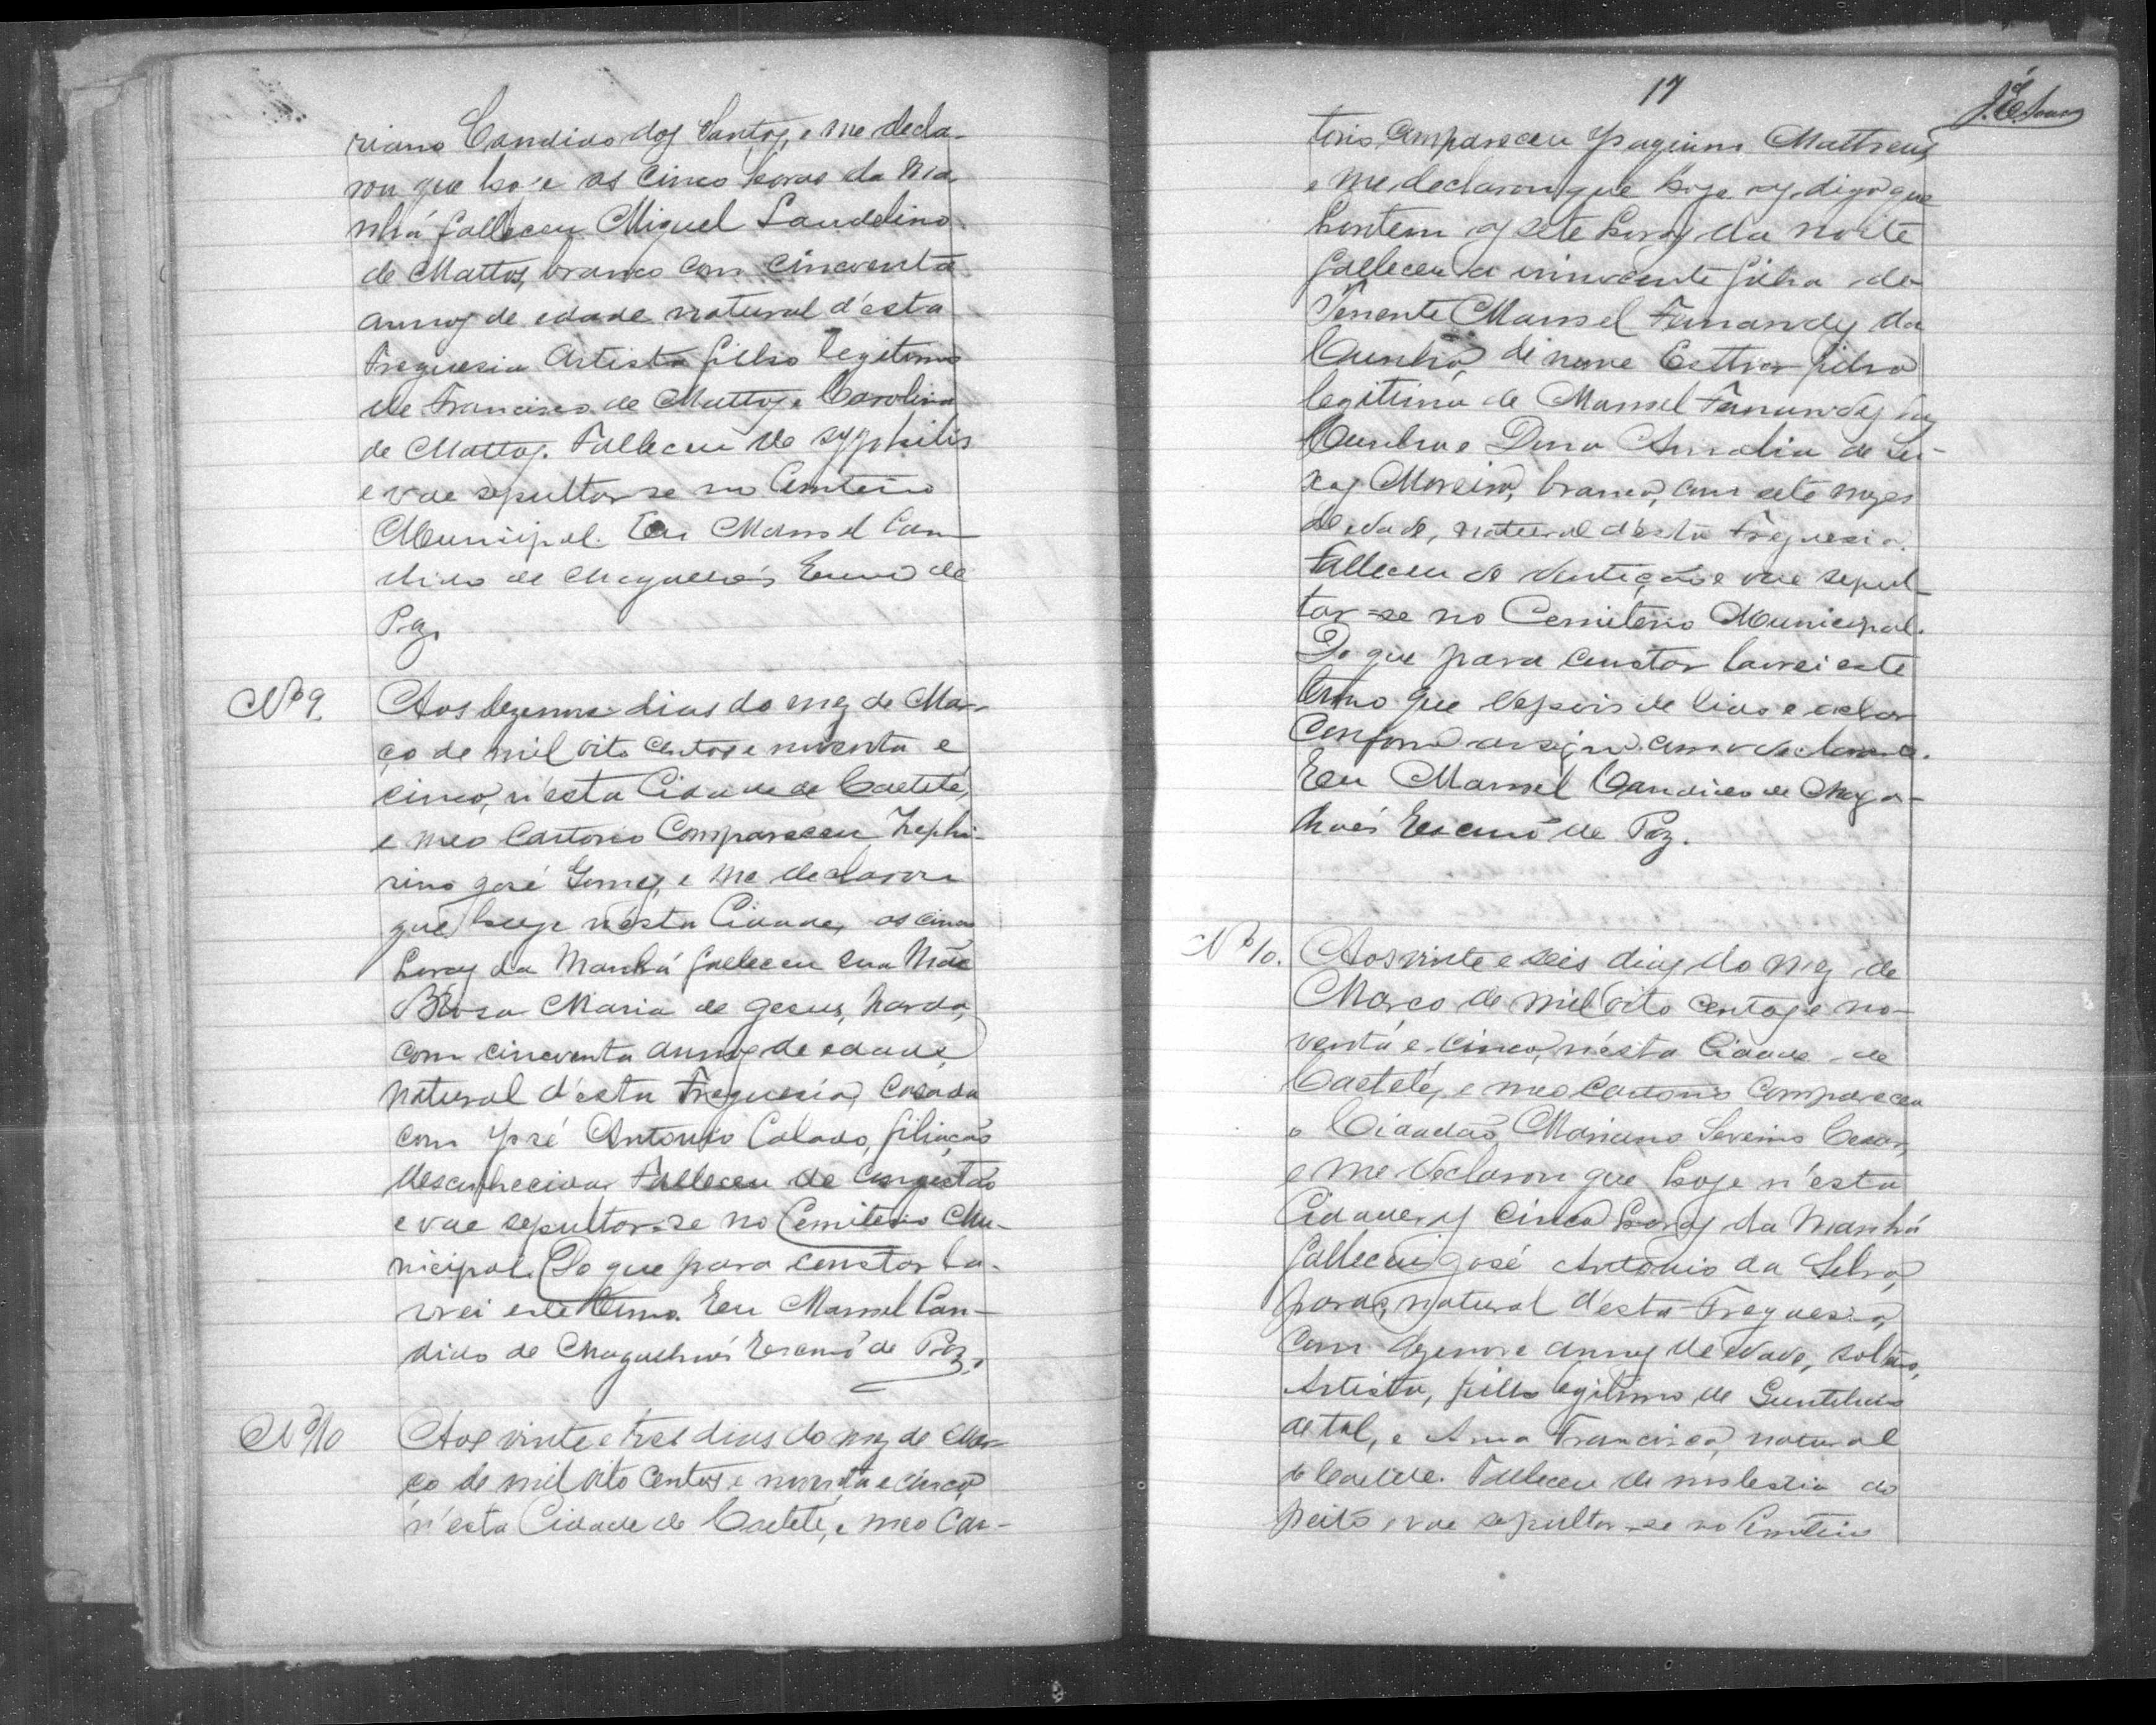 riano Candido dos Santos, e me decla-
rou que hoje as cinco horas da ma
nhã falleceu Miguel Laudelino
de Mattos, branco com cincoenta
annos de edade natural d'esta
Freguesia Artista filho legitimo
de Francisco de Mattos e Carolina
de Mattos. Falleceu de syphilis
e vae sepultar-se no Cemiterio
Municipal. Eu Manoel Can-
dido de Magalhães Escrivão de
Paz.
Nº 9.
Aos dezenove dias do mez de Mar-
ço de mil oito centos e noventa e
cinco, n'esta Cidade de Caeteté,
e meo Cartorio Compareceu Zephi-
rino José Gomes, e me declarou
que hoje n'esta Cidade, as cinco
horas da Manhã falleceu sua Mãe
Rosa Maria de Jesus, parda,
com cincoenta annos de edade,
natural d'esta Freguesia, casada
com José Antonio Calado, filiação
desconhecida. Falleceu de congestão
e vae sepultar-se no Cemiterio Mu-
nicipal. Do que para constar la-
vrei este termo. Eu Manoel Can-
dido de Magalhães Escrivão de Paz.
Nº 10
Aos vinte e tres dias do mez de Mar-
ço de mil oito centos e noventa e cinco,
n'esta Cidade de Caeteté, e meo Car-
17
torio, compareceu Joaquim Mattheus,
e me declarou que hoje as, digo que
hontem as sete horas da noite
falleceu a innocente filha do
Tenente Manoel Fernandes da
Cunha, de nome Esther filha
legitima de Manoel Fernandes da
Cunha e Dona Amalia de Sei-
xas Moreira, branca, com sete mezes
de edade, natural d'esta Freguesia.
Falleceu de dentição e vae sepul-
tar-se no Cemiterio Municipal.
Do que para constar lavrei este
termo que depois de lido e achar
Conforme assigna com o declarante.
Eu Manoel Candido de Maga-
lhães Escrivão de Paz.
Nº 10.
Aos vinte e seis dias do mez de
Março de mil oito centos e no-
venta e cinco, n'esta Cidade de
Caeteté, e meo Cartorio compareceu
o Cidadão, Mariano Severino Cesar,
e me declarou que hoje n'esta
Cidade as cinco horas da Manhã
falleceu José Antonio da Silva,
pardo, natural d'esta Freguesia,
com dezenove annos de edade, solteiro,
Artista, filho legitimo de
de tal, e Anna Francisca, natural
de Caeteté. Falleceu de molestia do
peito, e vae sepultar-se no Cemiterio